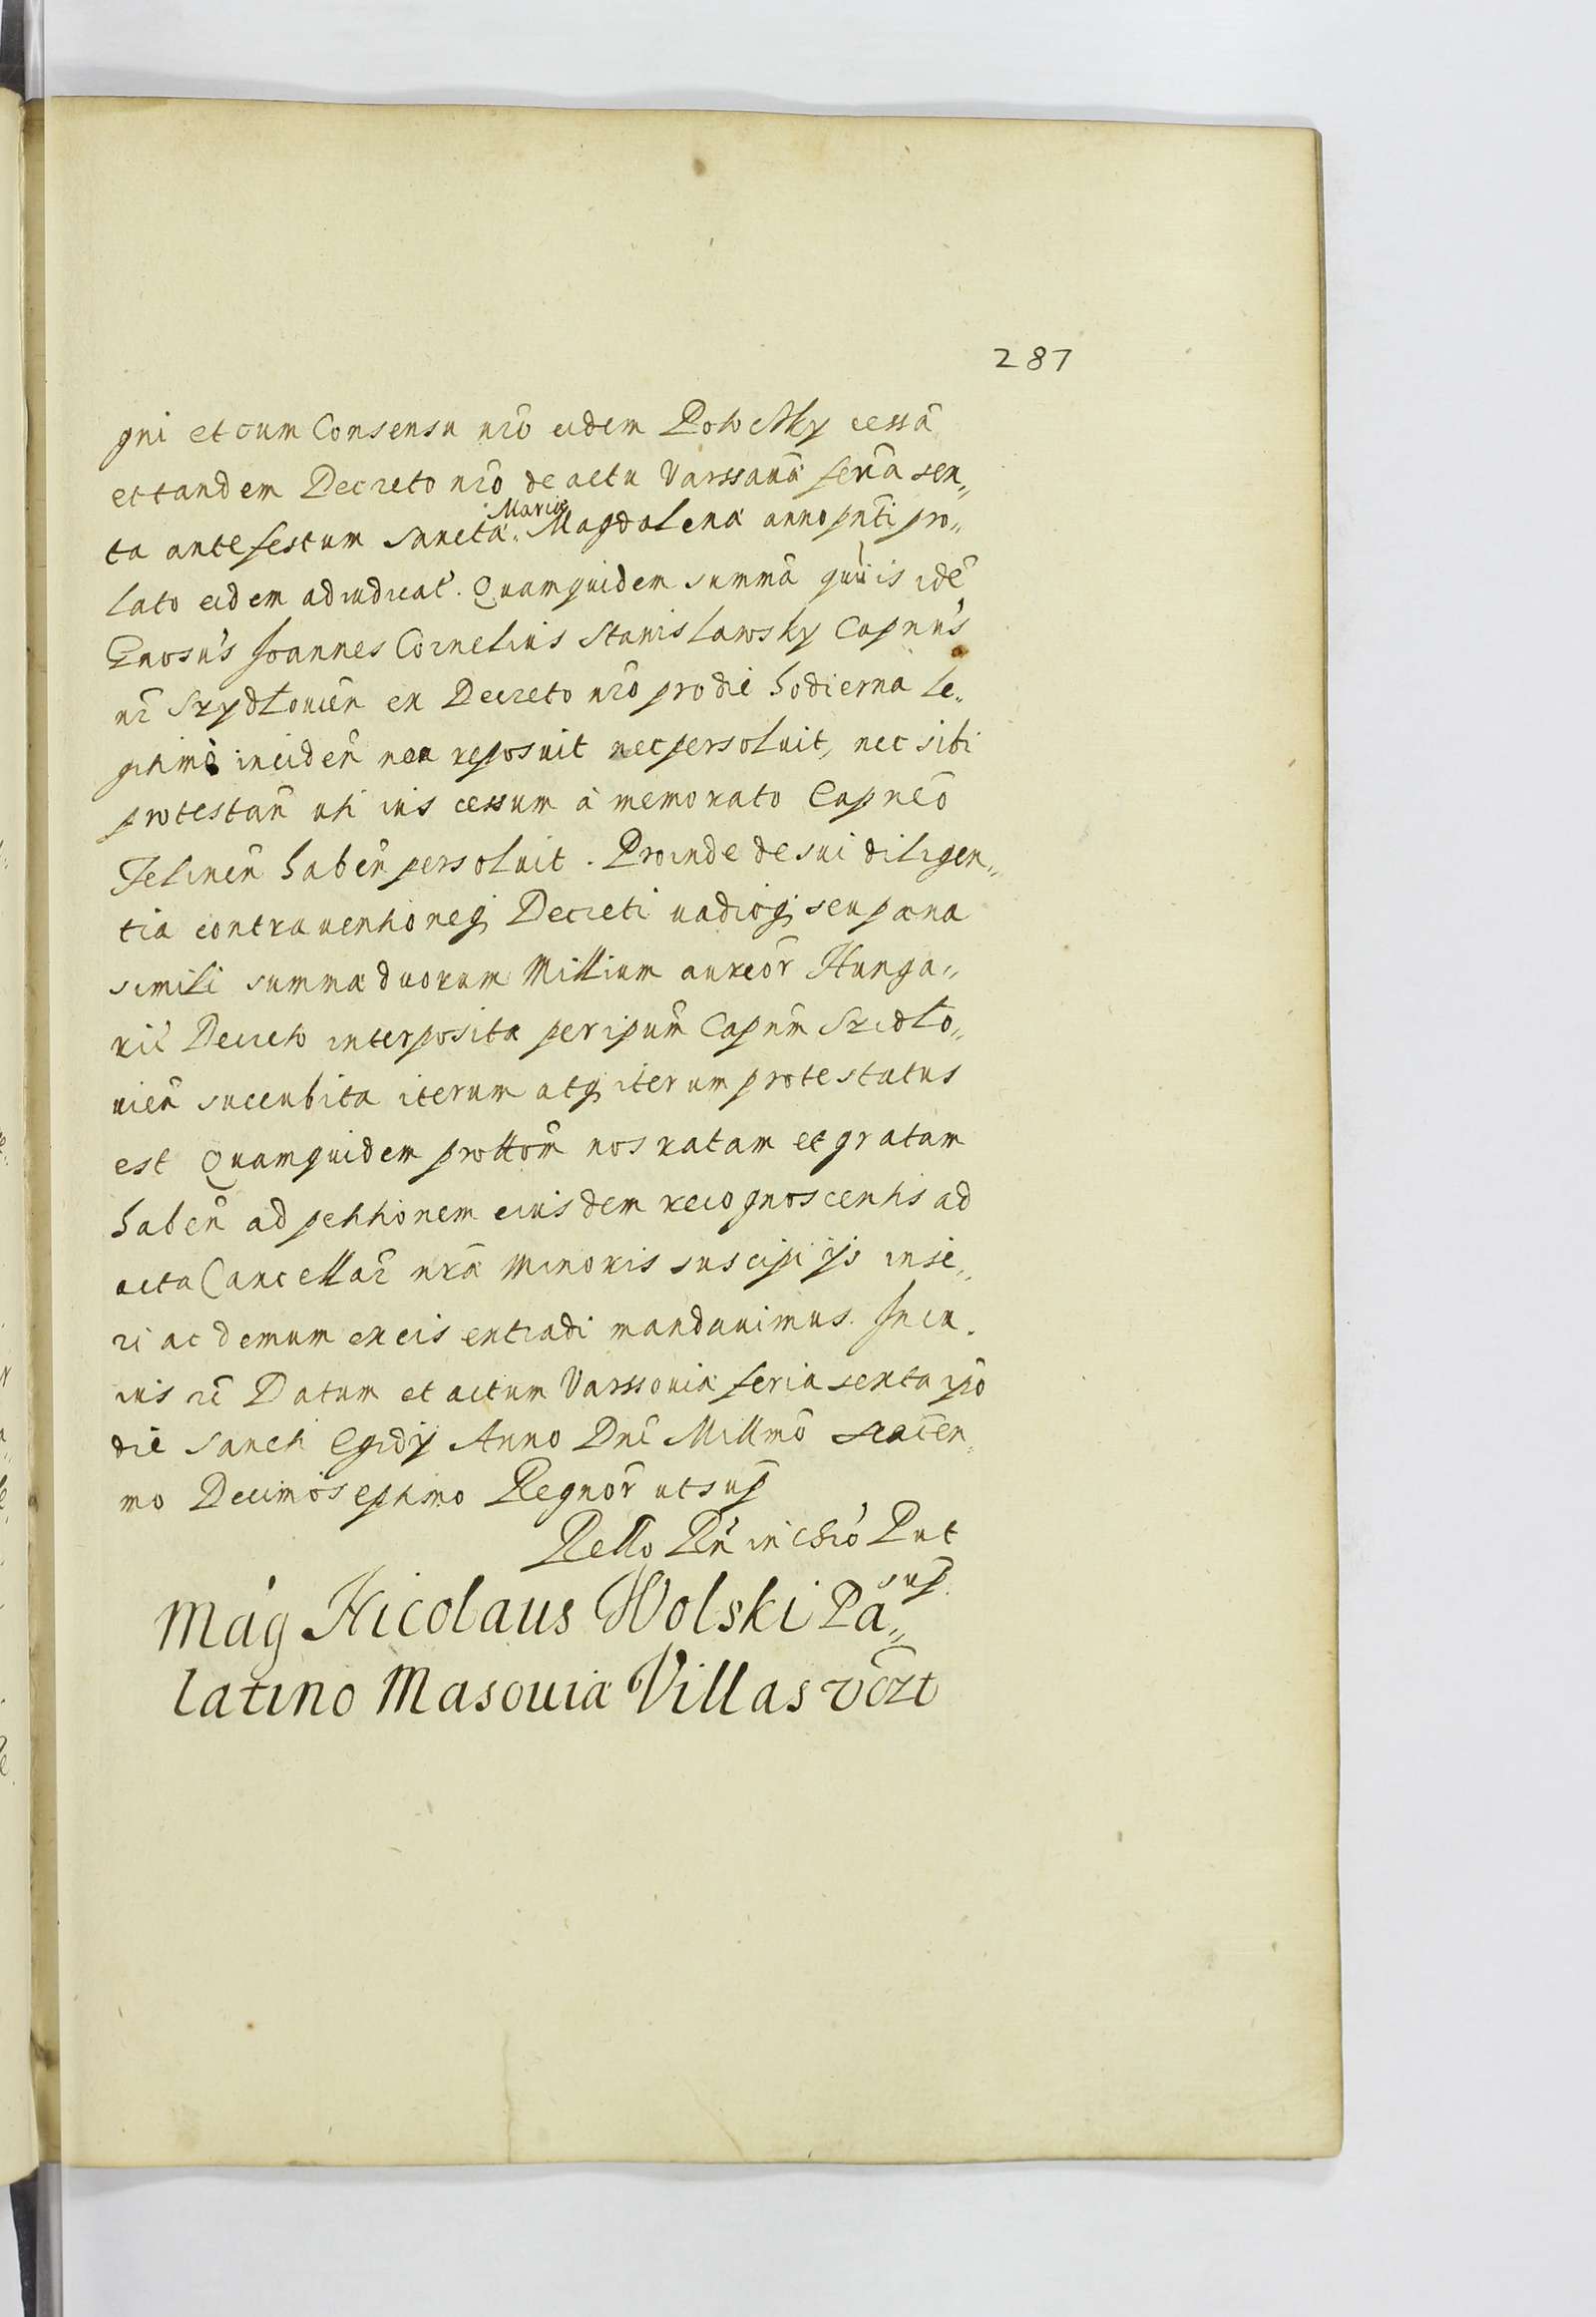 287
gni et cum Consensu nrō eidem Potoczky cessā
et tandem Decreto nrō de actu Varssauiæ feriā sex„
ta ante festum Sanctæ Mariæ Magdalenæ anno pnti pro„
lato eidem adiudicat. Quamquidem summā quuis idē
Gnosus Joannes Cornelius Stanislawsky Capnūs
nr̄ Szydlouien̄ ex Decreto nrō pro die hodierna le„
gitime inciden̄ nec reposuit nec persoluit, nec sibi
protestan̄ uti ius cessum a memorato Capneō
Felinen̄ haben̄ persoluit. Proinde de sui diligen„
tia contrauentioneq Decreti uadioq seu pœna
simili summæ duorum Millium aureor̄ Hunga„
ric̄ Decreto interposita per ipum̄ Capnm̄ Szidlo„
uien̄ succubita iterum atq iterum protestatus
est Quamquidem prottōm nos ratam et gratam
haben̄ ad petitionem eiusdem recognoscentis ad
acta Cancellar̄ nræ Minoris suscipi ijs inse„
ri ac demum ex eis extradi mandauimus. In cu„
ius rē Datum et actum Varssouiæ feria sexta ipō
die Sancti Egidÿ Anno Dni Millmō sexcen„
mo Decimoseptimo Regnor̄ ut sup
Rello Rn̄ in Chrō Put
sup
Mag Nicolaus Wolski Pa„
latino Masouiæ Villas